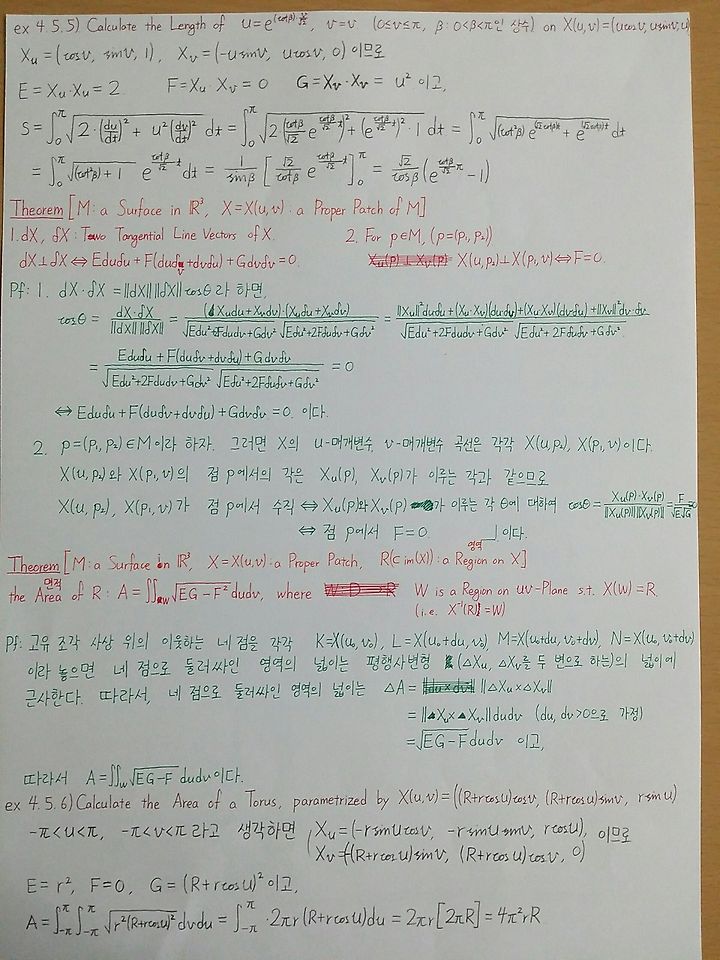 ex 4.5.5) Calculate the Length of u=e^{(cotβ)·v/√2}, v=v (0≤v≤π, β: 0<β<π인 상수) on X(u,v)=(ucosv, usinv, u)
Xu=(cosv, sinv, 1), Xv=(-usinv, ucosv, 0) 이므로
E=Xu·Xu=2 F=Xu·Xv=0 G=Xv·Xv=u² 이고,
S=∫₀^π √(2·(du/dt)²+u²(dv/dt)²) dt = ∫₀^π √(2(cotβ/√2 e^{cotβ/√2 t})²+(e^{cotβ/√2 t})²·1) dt = ∫₀^π √((cot²β)e^{(√2cotβ)t}+e^{(√2cotβ)t}) dt
=∫₀^π √((cot²β)+1) e^{cotβ/√2 t} dt = 1/sinβ [√2/cotβ e^{cotβ/√2 t}]₀^π = √2/cosβ (e^{cotβ/√2 π}-1)
Theorem [M: a Surface in ℝ³, X=X(u,v): a Proper Patch of M]
1. dX, δX: Two Tangential Line Vectors of X. 2. For p∈M, (p=(p₁,p₂))
dX⊥δX ⇔ Eduδu+F(duδv+dvδu)+Gdvδv=0. X(u,p₂)⊥X(p₁,v)⇔F=0.
Pf: 1. dX·δX=||dX|| ||δX||cosθ라 하면,
cosθ = dX·δX/(||dX|| ||δX||) = (Xudu+Xvdv)·(Xuδu+Xvδv)/(√(Edu²+2Fdudv+Gdv²) √(Eδu²+2Fδuδv+Gδv²)) = (||Xu||²duδu+(Xu·Xv)(duδv)+(Xu·Xv)(dvδu)+||Xv||²dv·δv)/(√(Edu²+2Fdudv+Gdv²) √(Eδu²+2Fδuδv+Gδv²))
= (Eduδu+F(duδv+dvδu)+Gdvδv)/(√(Edu²+2Fdudv+Gdv²) √(Eδu²+2Fδuδv+Gδv²)) = 0
⇔ Eduδu+F(duδv+dvδu)+Gdvδv=0. 이다.
2. p=(p₁,p₂)∈M이라 하자. 그러면 X의 u-매개변수, v-매개변수 곡선은 각각 X(u,p₂), X(p₁,v)이다.
X(u,p₂)와 X(p₁,v)의 점 p에서의 각은 Xu(p), Xv(p)가 이루는 각과 같으므로
X(u,p₂), X(p₁,v)가 점 p에서 수직 ⇔ Xu(p)와 Xv(p)가 이루는 각 θ에 대하여 cosθ=Xu(p)·Xv(p)/(||Xu(p)|| ||Xv(p)||)=F/√E√G=0
⇔ 점 p에서 F=0. 이다.
Theorem [M: a Surface in ℝ³, X=X(u,v): a Proper Patch, R(⊂im(X)): a Region on X] 영역
the Area of R: A=∬_W √(EG-F²)dudv, where W is a Region on uv-Plane s.t. X(W)=R. 면적
(i.e. X⁻¹(R)=W)
Pf: 고유 조각 사상 위의 이웃하는 네 점을 각각 K=X(u₀,v₀), L=X(u₀+du,v₀), M=X(u₀+du,v₀+dv), N=X(u₀,v₀+dv)
이라 놓으면 네 점으로 둘러싸인 영역의 넓이는 평행사변형 (△Xu, △Xv를 두 변으로 하는)의 넓이에
근사한다. 따라서, 네 점으로 둘러싸인 영역의 넓이는 △A= ||△Xu×△Xv||
= ||Xu×Xv||dudv (du, dv>0으로 가정)
=√(EG-F) dudv 이고,
따라서 A=∬_W √(EG-F) dudv 이다.
ex 4.5.6) Calculate the Area of a Torus, parametrized by X(u,v)=((R+rcosu)cosv, (R+rcosu)sinv, rsinu)
-π<u<π, -π<v<π 라고 생각하면 Xu=(-rsinucosv, -rsinusinv, rcosu), 이므로
Xv=(-(R+rcosu)sinv, (R+rcosu)cosv, 0)
E=r², F=0, G=(R+rcosu)² 이고,
A=∫_{-π}^π ∫_{-π}^π √(r²(R+rcosu)²) dvdu = ∫_{-π}^π ·2πr(R+rcosu)du = 2πr[2πR] = 4π²rR